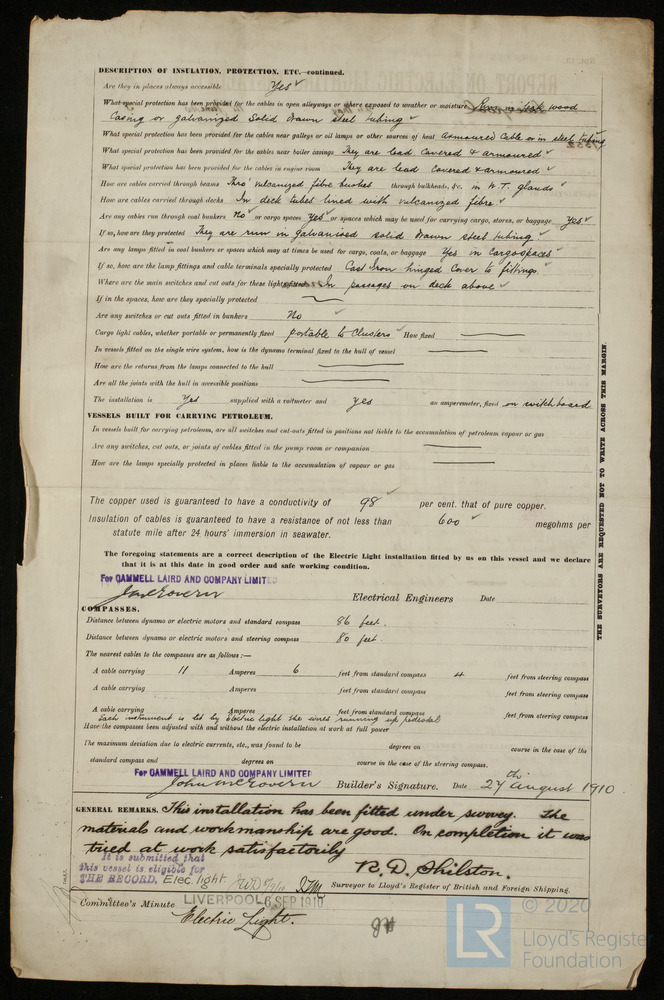 DESCRIPTION OF INSULATION, PROTECTION, ETC.—continued.
Are they in places always accessible Yes
What special protection has been provided for the cables in open alleyways or where exposed to weather or moisture Run in teak wood
Casing or galvanized Solid drawn steel tubing
What special protection has been provided for the cables near galleys or oil lamps or other sources of heat Armoured Cable or in steel tubing
What special protection has been provided for the cables near boiler casings They are lead Covered & armoured
What special protection has been provided for the cables in engine room They are lead Covered & armoured
How are cables carried through beams Thro' vulcanized fibre bushes through bulkheads, &c. in W. T. glands
How are cables carried through decks In deck tubes lined with vulcanized fibre
Are any cables run through coal bunkers No or cargo spaces Yes or spaces which may be used for carrying cargo, stores, or baggage Yes
If so, how are they protected They are run in galvanised solid drawn steel tubing.
Are any lamps fitted in coal bunkers or spaces which may at times be used for cargo, coals, or baggage Yes in Cargo spaces
If so, how are the lamp fittings and cable terminals specially protected Cast Iron hinged Cover to fittings.
Where are the main switches and cut outs for these lights fitted In passages on deck above
If in the spaces, how are they specially protected
Are any switches or cut outs fitted in bunkers No
Cargo light cables, whether portable or permanently fixed portable to Clusters How fixed
In vessels fitted on the single wire system, how is the dynamo terminal fixed to the hull of vessel
How are the returns from the lamps connected to the hull
Are all the joints with the hull in accessible positions
The installation is Yes supplied with a voltmeter and Yes an amperemeter, fixed on switchboard
VESSELS BUILT FOR CARRYING PETROLEUM.
In vessels built for carrying petroleum, are all switches and cut-outs fitted in positions not liable to the accumulation of petroleum vapour or gas
Are any switches, cut outs, or joints of cables fitted in the pump room or companion
How are the lamps specially protected in places liable to the accumulation of vapour or gas
The copper used is guaranteed to have a conductivity of 98 per cent. that of pure copper.
Insulation of cables is guaranteed to have a resistance of not less than 600 megohms per
statute mile after 24 hours' immersion in seawater.
The foregoing statements are a correct description of the Electric Light installation fitted by us on this vessel and we declare
that it is at this date in good order and safe working condition.
For CAMMELL LAIRD AND COMPANY LIMITED
Electrical Engineers Date
COMPASSES.
Distance between dynamo or electric motors and standard compass 86 feet.
Distance between dynamo or electric motors and steering compass 80 feet
The nearest cables to the compasses are as follows:—
A cable carrying 11 Amperes 6 feet from standard compass 4 feet from steering compass
A cable carrying Amperes feet from standard compass feet from steering compass
A cable carrying Amperes feet from standard compass feet from steering compass
Each instrument is lit by Electric light the wires running up pedestal
Have the compasses been adjusted with and without the electric installation at work at full power
The maximum deviation due to electric currents, etc., was found to be degrees on course in the case of the
standard compass and degrees on course in the case of the steering compass.
For CAMMELL LAIRD AND COMPANY LIMITED
John McGovern Builder's Signature. Date 27th August 1910
GENERAL REMARKS. This installation has been fitted under survey. The
materials and workmanship are good. On completion it was
tried at work satisfactorily
It is submitted that
this vessel is eligible for
THE RECORD. Elec. light
R. D. Shilston.
Surveyor to Lloyd's Register of British and Foreign Shipping.
Committee's Minute LIVERPOOL 6 SEP 1910
Electric Light.
THE SURVEYORS ARE REQUESTED NOT TO WRITE ACROSS THIS MARGIN.
© 2020
LR
Lloyd's Register
Foundation